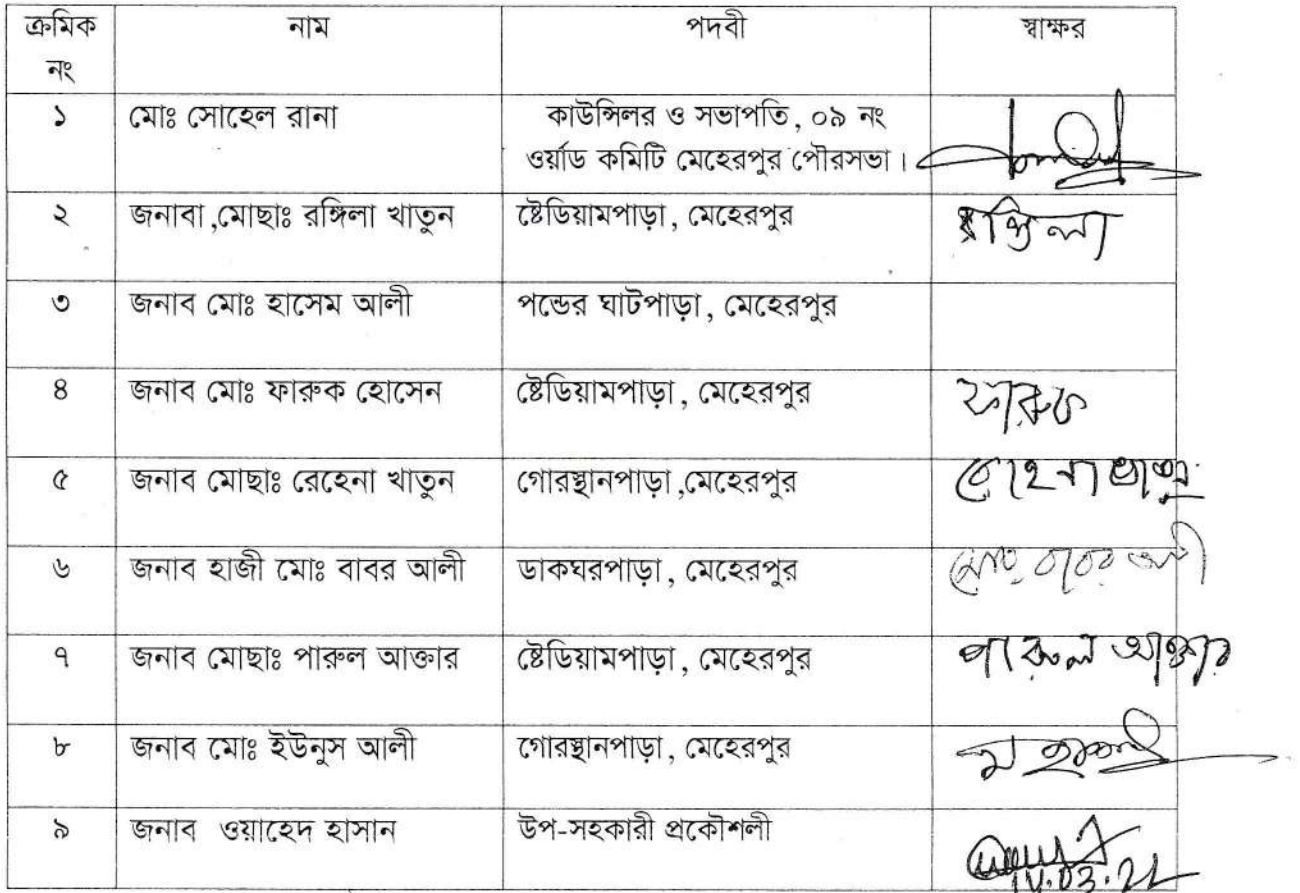 ক্রমিক নং নাম পদবী স্বাক্ষর
১ মোঃ সোহেল রানা কাউন্সিলর ও সভাপতি, ০৯ নং
ওর্য়াড কমিটি মেহেরপুর পৌরসভা।
২ জনাবা ,মোছাঃ রঙ্গিলা খাতুন ষ্টেডিয়ামপাড়া, মেহেরপুর
৩ জনাব মোঃ হাসেম আলী পন্ডের ঘাটপাড়া, মেহেরপুর
৪ জনাব মোঃ ফারুক হোসেন ষ্টেডিয়ামপাড়া, মেহেরপুর ফারুক
৫ জনাব মোছাঃ রেহেনা খাতুন গোরস্থানপাড়া,মেহেরপুর
৬ জনাব হাজী মোঃ বাবর আলী ডাকঘরপাড়া, মেহেরপুর
৭ জনাব মোছাঃ পারুল আক্তার ষ্টেডিয়ামপাড়া, মেহেরপুর পারুল আক্তার
৮ জনাব মোঃ ইউনুস আলী গোরস্থানপাড়া, মেহেরপুর
৯ জনাব ওয়াহেদ হাসান উপ-সহকারী প্রকৌশলী